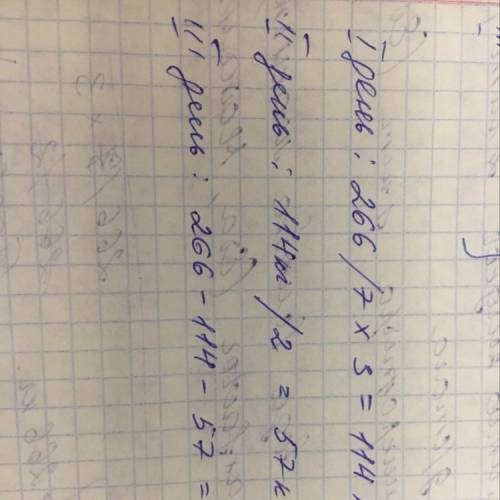 I день: 266/7 x 3 = 114
II день: 114кг/2 = 57к
III день: 266 - 114 - 57 =